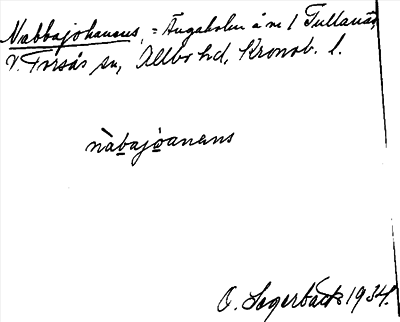 Nabbajohanens, = Ängaholm å nr 1 Tullanäs,
V. Torsås sn, Allbo hd, Kronob. l.
nàbajòanens
O. Lagerbäck 1934.